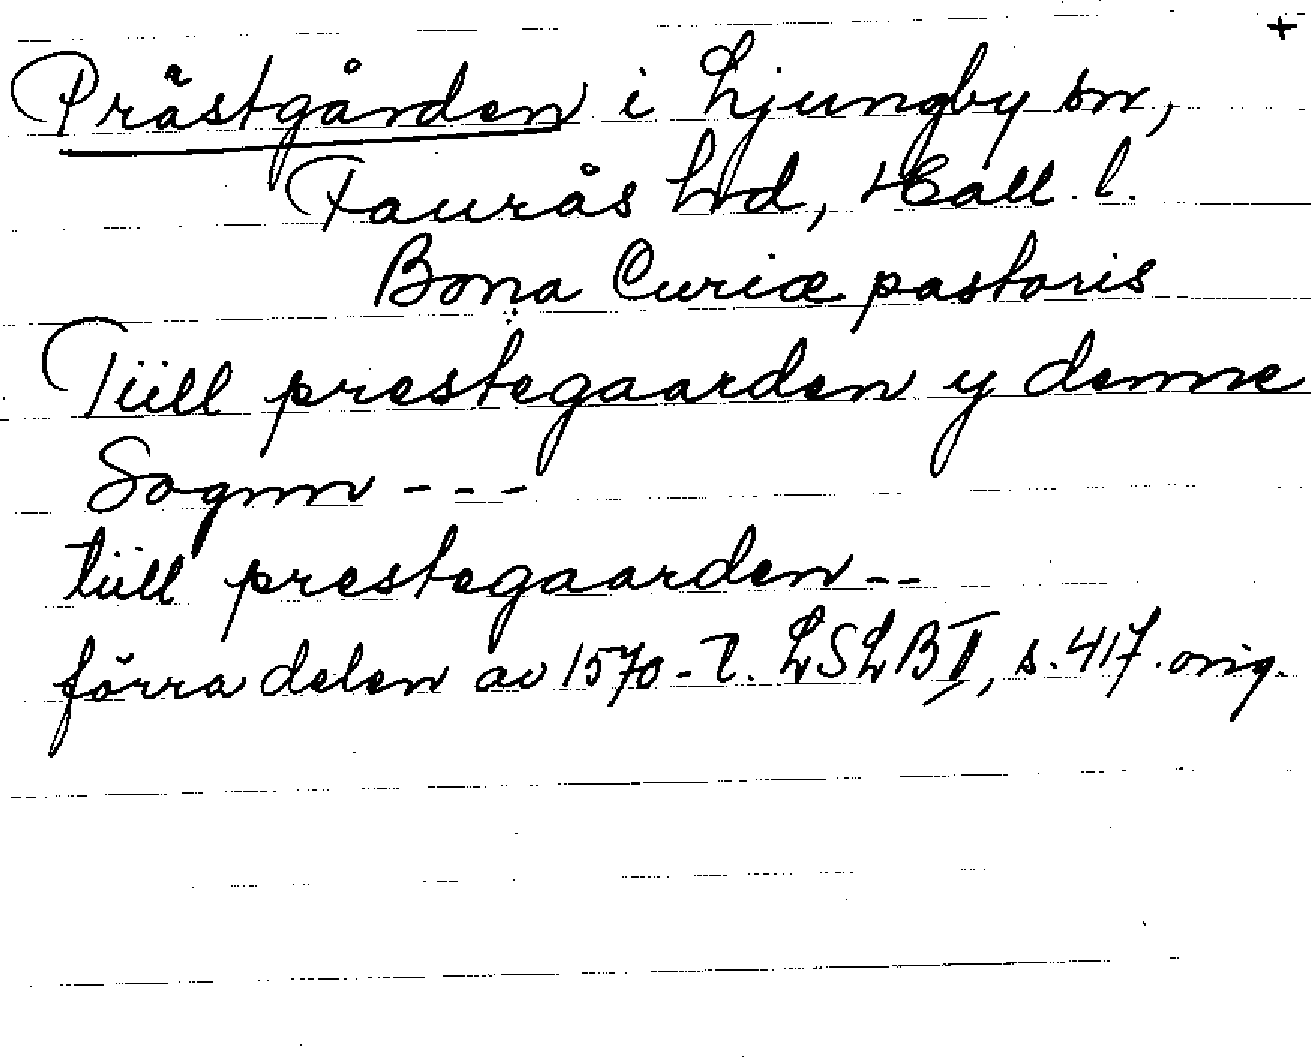 +
Prästgården i Ljungby sn,
Faurås hd, Hall. l.
Bona Curiæ pastoris
Tiill prestegaarden y denne
Sognn - - -
tiill prestegaarden - -
förra delen av 1570-t. LSLB II, s. 417. orig.